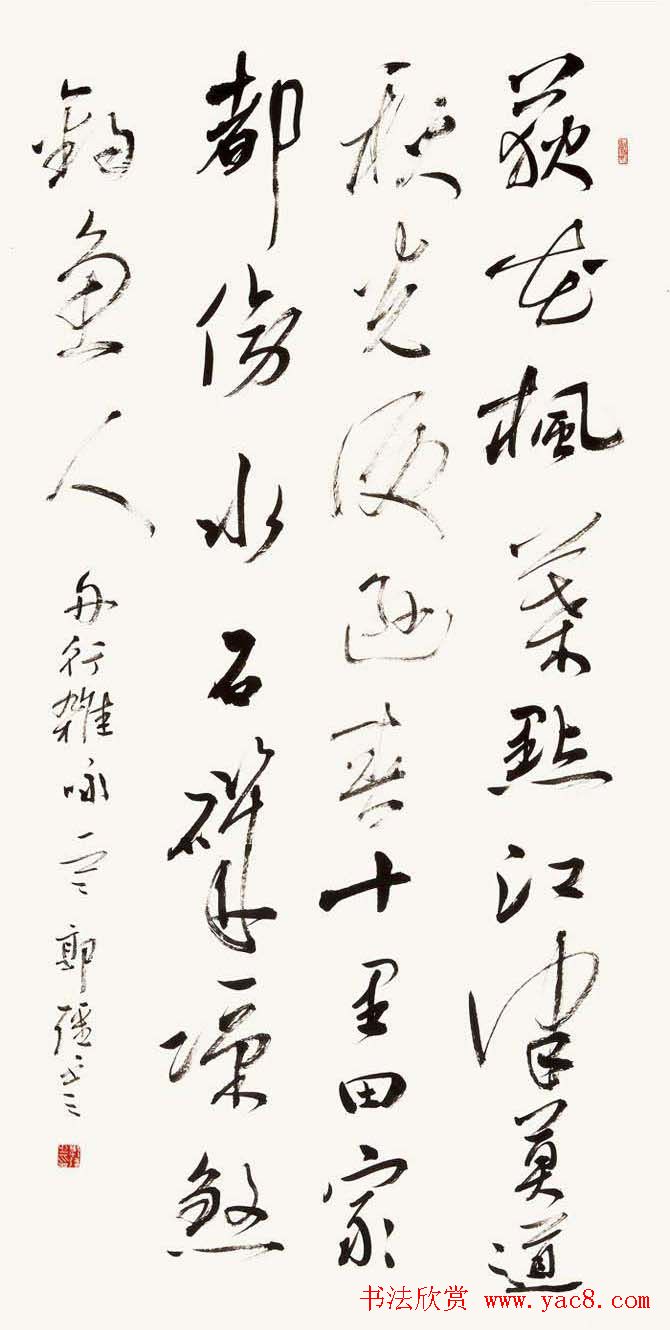 荻花楓葉點江津莫道
秋光便遜春十里田家
都傍水石煞
釣魚人
舟行雜咏一 郭強
书法欣赏 www.yac8.com